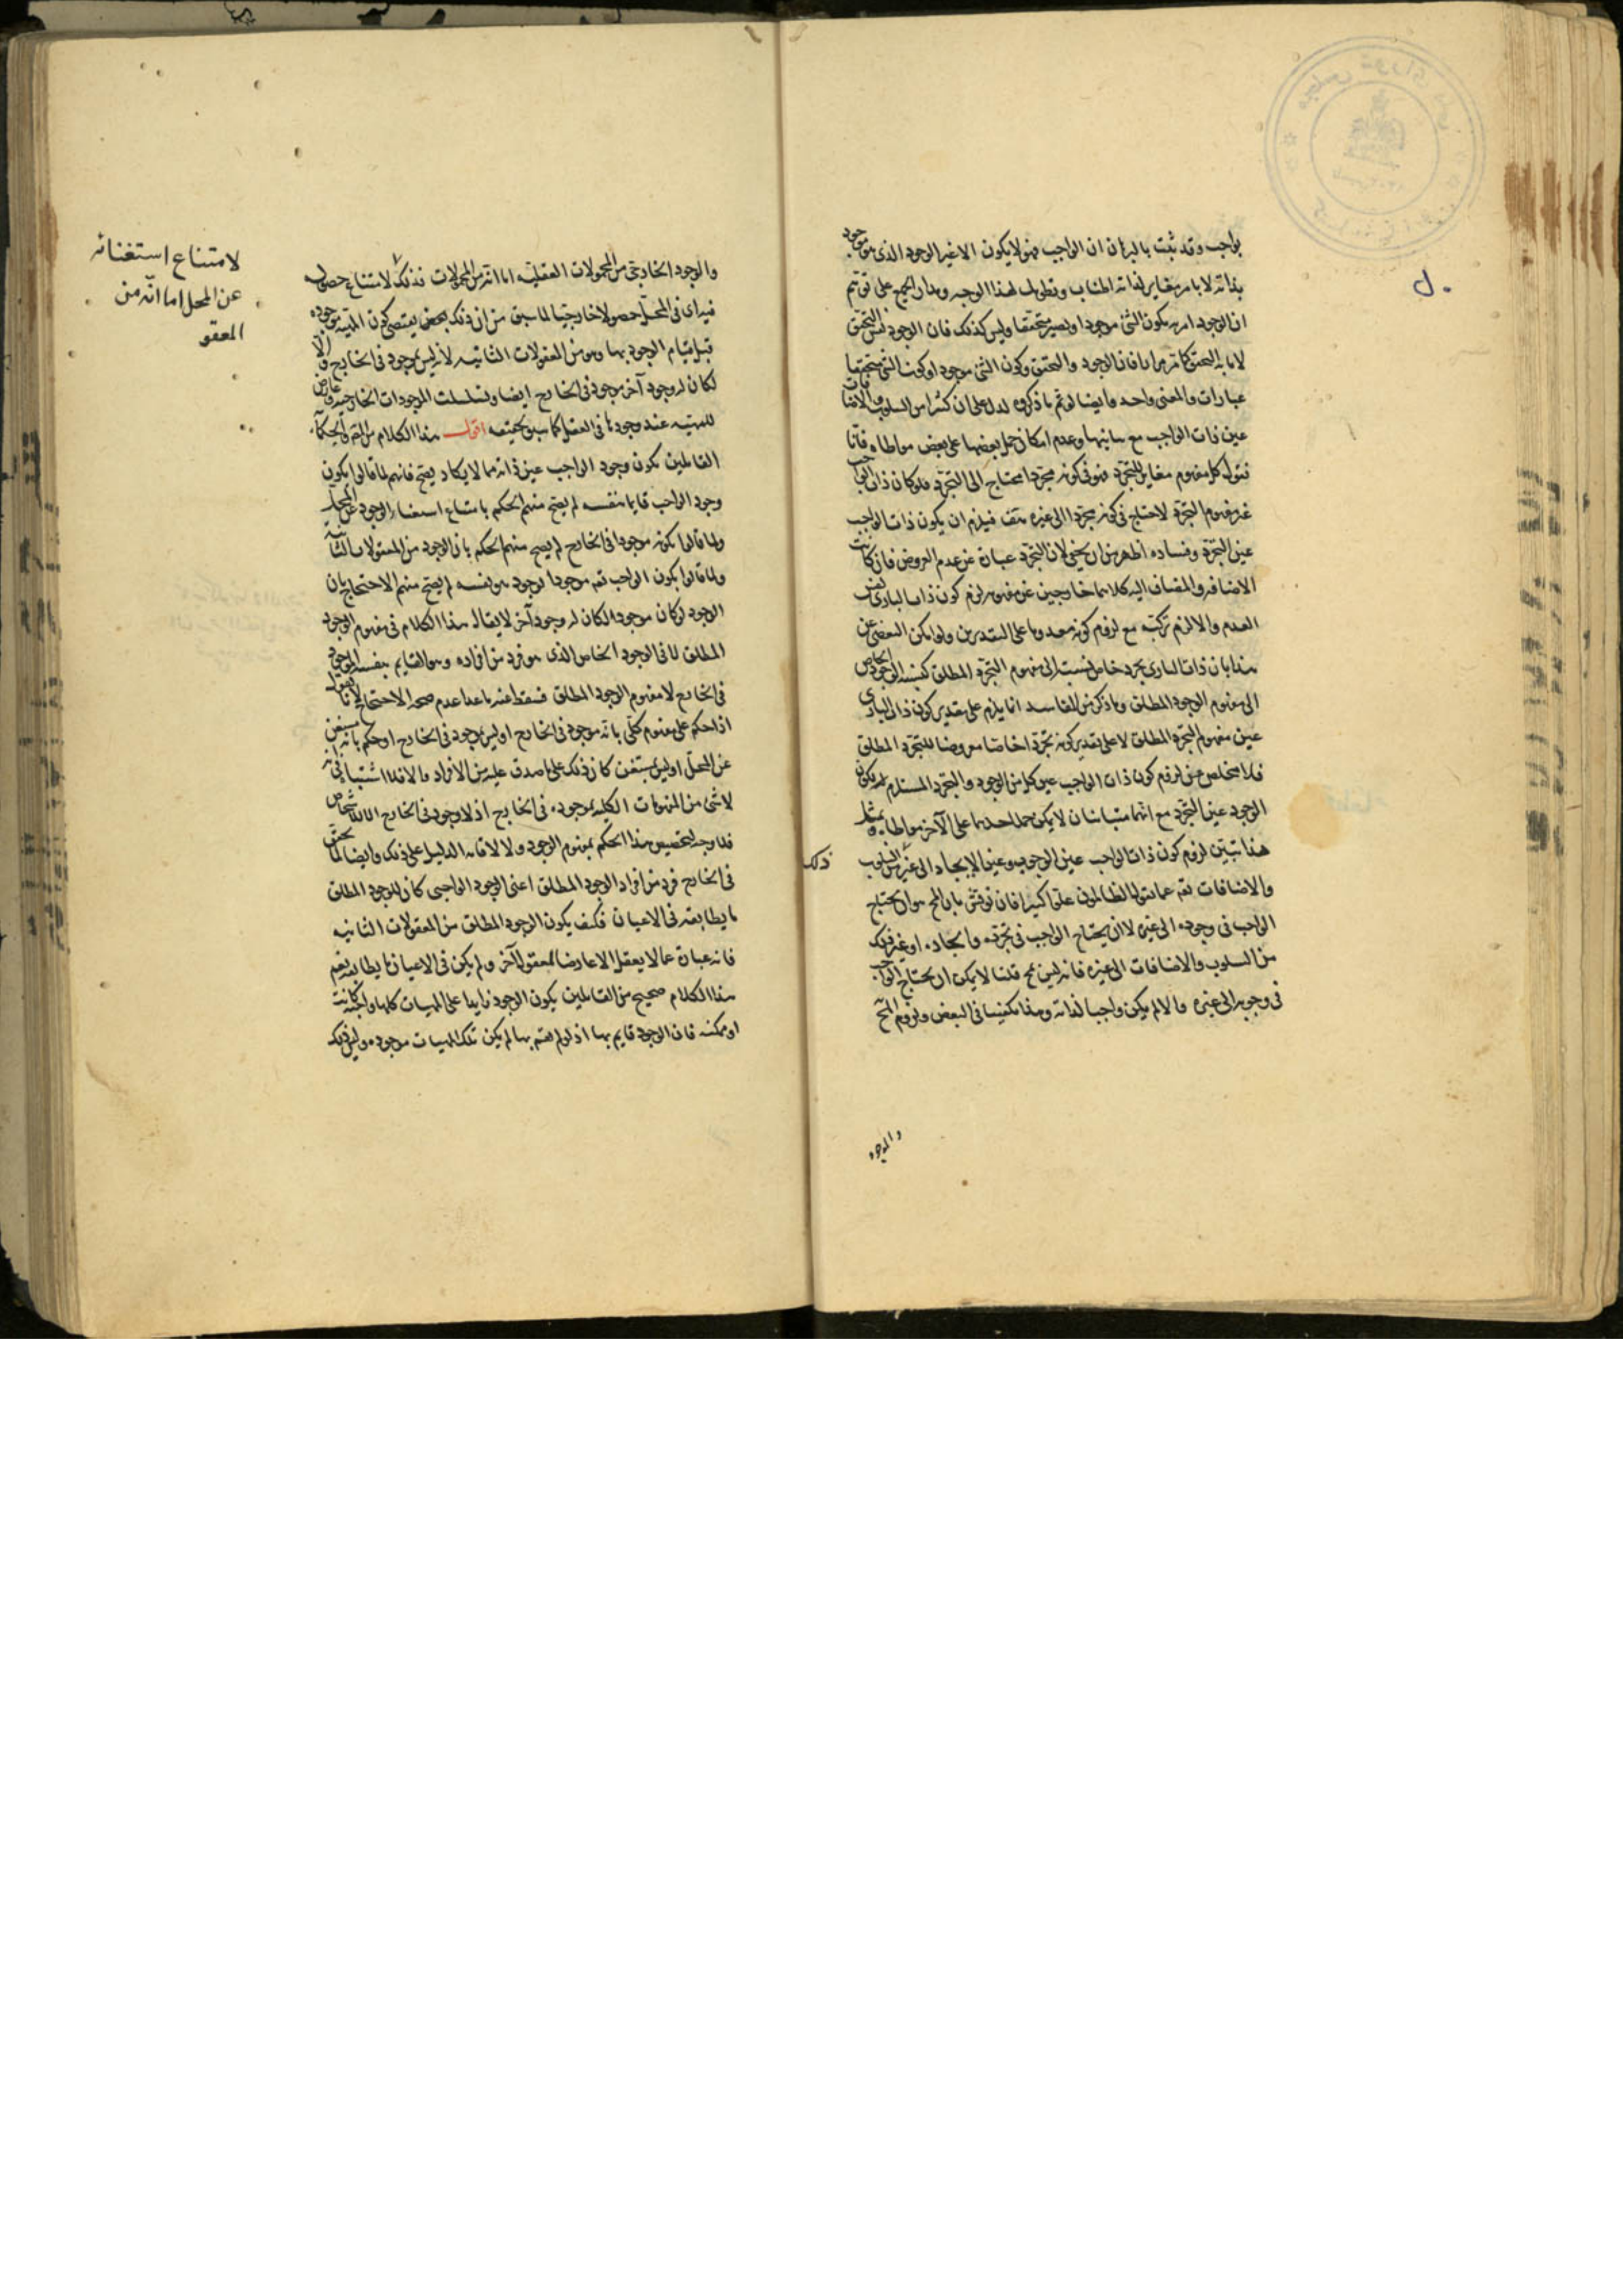 بواجب وقد ثبت بالبرهان ان الواجب فهو لا يكون الا غير الوجود الذى هو موجود
بذاته لا بامر مغاير لذاته المناب وتطويل لهذا الوجه ومدار الجميع على توهم
ان الوجود امر به يكون الشئ موجودا ويصير متحققا وليس كذلك فان الوجود نفس التحقق
لا ما به التحقق كما مر مرارا فان الوجود والتحقق وكون الشئ موجودا وكون الشئ متحققا
عبارات والمعنى واحد وايضا لو تم ما ذكروه لدل على ان كثيرا من السلوب والاضافات
عين ذات الواجب مع مباينتها وعدم امكان حمل بعضها على بعض مواطاة فانا
نقول كل مفهوم مغاير للتجرد فهو فى كونه مجردا محتاج الى التجرد فلو كان ذات الواجب
غير مفهوم التجرد لاحتاج فى كونه مجردا الى غيره هف فيلزم ان يكون ذات الواجب
عين التجرد وفساده اظهر من ان يخفى لان التجرد عبارة عن عدم العروض فان كانت
الاضافه والمضاف اليه كلاهما خارجين عن مفهومه لزم كون ذات البارى نفس
العدم والا لزم تركبه مع لزوم كونه معدوما على التقديرين ولو امكن التفصى عن
هذا بان ذات البارى تجرد خاص نسبته الى مفهوم التجرد المطلق كنسبة الوجود الخاص
الى مفهوم الوجود المطلق وما ذكر من المفاسد انما يلزم على تقدير كون ذات البارى
عين مفهوم التجرد المطلق لا على تقدير كونه تجردا خاصا معروضا للتجرد المطلق
فلا مخلص عن لزوم كون ذات الواجب عين كل من الوجود والتجرد المستلزم لان يكون
الوجود عين التجرد مع انهما متباينان لا يمكن حمل احدهما على الآخر مواطاة وبمثل
هذا تبين لزوم كون ذات الواجب عين الوجوب وعين الايجاد الى غير ذلك من السلوب
والاضافات تعم عما يقول الظالمون علوا كبيرا فان نوقش بان المح هو ان يحتاج
الواجب فى وجوده الى غيره لا ان يحتاج الواجب فى تجرده وايجاده او غير ذلك
من السلوب والاضافات الى غيره فانه ليس بمح قلنا لا يمكن ان يحتاج الواجب
فى وجوبه الى غيره والا لم يكن واجبا لذاته وهذا يكفينا فى النقض ولزوم المح
والوجود
والوجود الخارجى من المحمولات العقلية اما انه من المحمولات فذلك لامتناع حصوله
فيه اى فى المحل حصولا خارجيا لما سبق من ان ذلك يقتضى كون المهية موجودة
قبل قيام الوجود بها وهو من المعقولات الثانيه لانه ليس بموجود فى الخارج والا
لكان له وجود آخر موجود فى الخارج ايضا وتسلسلت الموجودات الخارجيه وعارض
للمهيه عند وجودها فى العقل كما سبق تحقيقه اقول هذا الكلام من المص والحكماء
القائلين بكون وجود الواجب عين ذاته مما لا يكاد يصح فانهم لما قالوا بكون
وجود الواجب قايما بنفسه لم يصح منهم الحكم بامتناع استغناء الوجود عن المحل
ولما قالوا بكونه موجودا فى الخارج لم يصح منهم الحكم بان الوجود من المعقولات الثانية
ولما قالوا بكون الواجب تعم موجودا بوجود هو نفسه لم يصح منهم الاحتجاج بان
الوجود لو كان موجودا لكان له وجود آخر لا يقال هذا الكلام فى مفهوم الوجود
المطلق لا فى الوجود الخاص الذى هو فرد من افراده وهو القايم بنفسه الموجود
فى الخارج لا مفهوم الوجود المطلق فسقط عنه ما عدا عدم صحه الاحتجاج لانا نقول
اذا حكم على مفهوم كلى بانه موجود فى الخارج او ليس بموجود فى الخارج او حكم بانه مستغن
عن المحل او ليس بمستغن كان ذلك على ما صدق عليه من الافراد والا فلا اشتباه فى انه
لا شئ من المفهومات الكليه بموجوده فى الخارج اذ لا وجود فى الخارج الا للاشخاص
فلا وجه لتخصيص هذا الحكم بمفهوم الوجود ولا لاقامه الدليل على ذلك وايضا لما تحقق
فى الخارج فرد من افراد الوجود المطلق اعنى الوجود الواجبى كان للوجود المطلق
ما يطابقه فى الاعيان فكيف يكون الوجود المطلق من المعقولات الثانيه
فانه عبارة عما لا يعقل الا عارضا لمعقول آخر ولم يكن فى الاعيان ما يطابقه نعم
هذا الكلام صحيح من القائلين بكون الوجود زايدا على المهيات كلها واجبة كانت
او ممكنه فان الوجود قايم بها اذ لو لم يقم بها لم يكن تلك المهيات موجوده وليس ذلك
لامتناع استغنائه
عن المحل اما انه من
المعقو